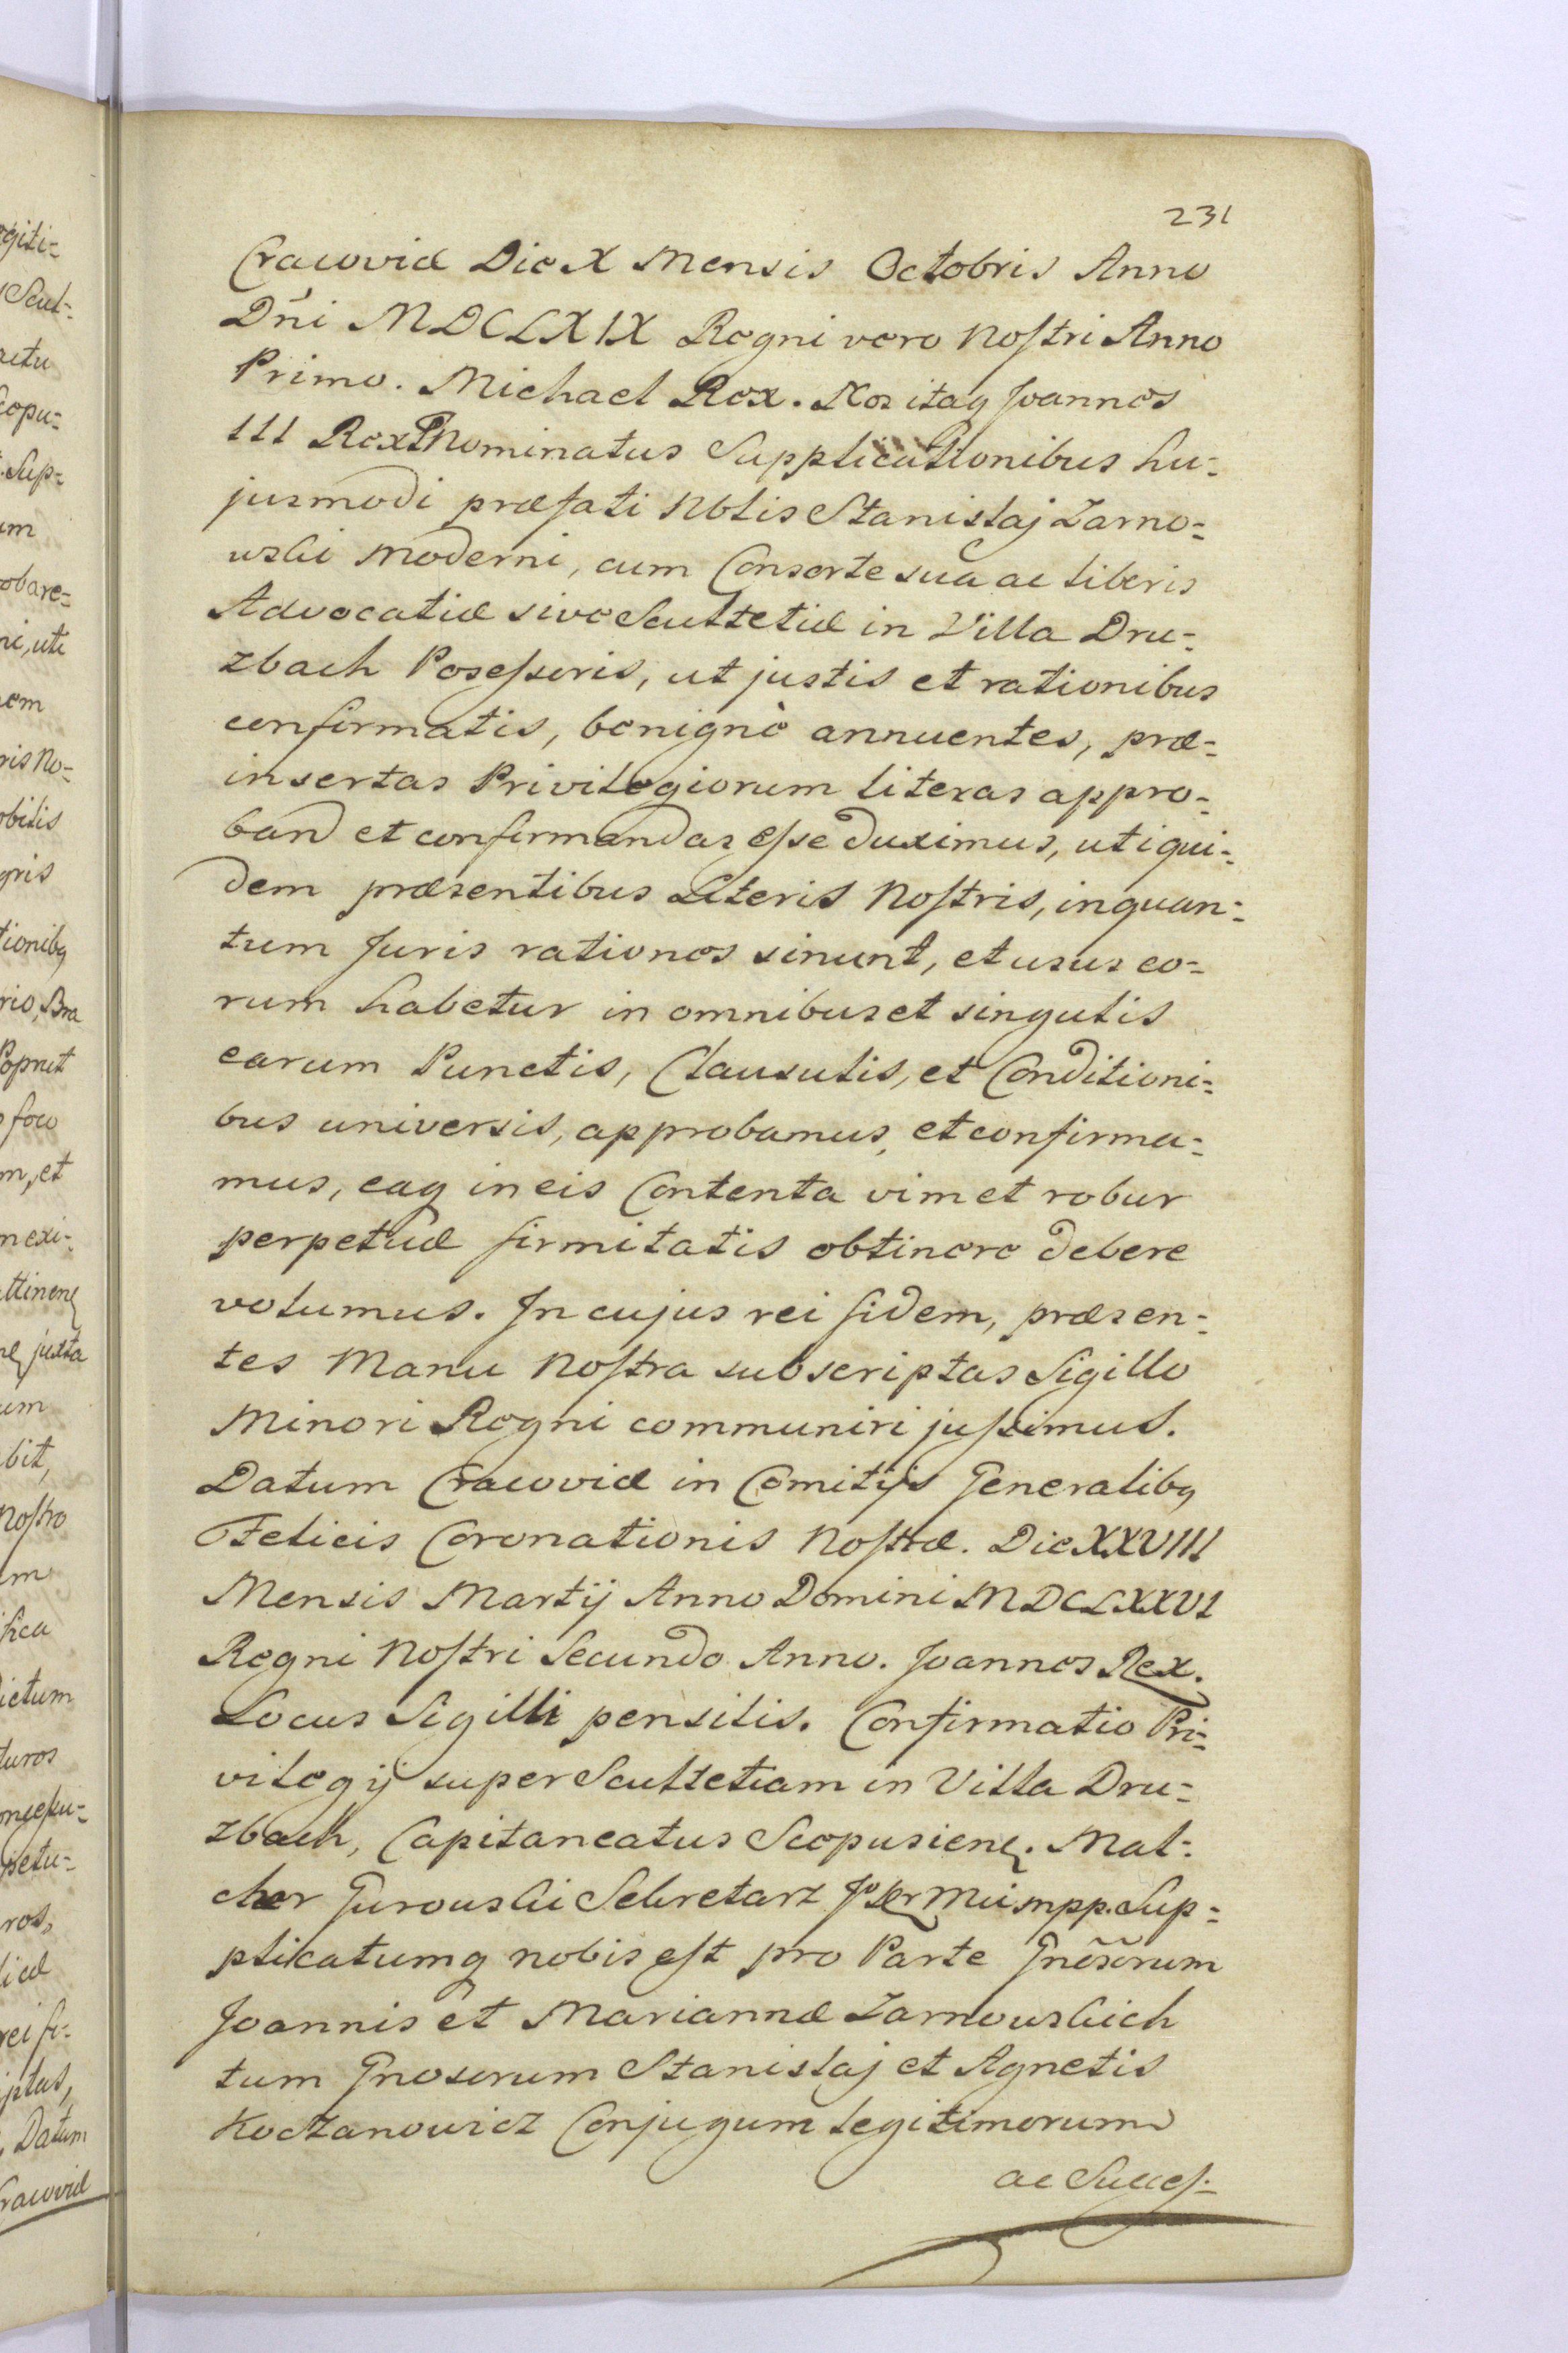 231
Cracoviæ Die X Mensis Octobris Anno
Dñi MDCLXIX Regni vero Nostri Anno
Primo. Michael Rex. Nos itaq Joannes
III Rex Pnominatus Supplicationibus hu-
jusmodi præfati Nblis Stanislaj Zarno-
wski moderni, cum Consorte sua ac liberis
Advocatiæ sive Scultetiæ in Villa Dru-
zbach Posessoris, ut justis et rationibus
confirmatis, benignè annuentes, præ-
insertas Privilegiorum literas appro-
band et confirmandas esse duximus, uti qui-
dem præsentibus Literis Nostris, inquan-
tum Juris rationes sinunt, et usus eo-
rum habetur in omnibus et singulis
earum Punctis, Clausulis, et Conditioni-
bus universis, approbamus, et confirma-
mus, eaq in eis Contenta vim et robur
perpetuæ firmitatis obtinere debere
volumus. In cujus rei fidem, præsen-
tes Manu Nostra subscriptas Sigillo
Minori Regni communiri jussimus.
Datum Cracoviæ in Comitijs Generalibq
Felicis Coronationis Nostræ. Die XXVIII
Mensis Martij Anno Domini MDCLXXVI
Regni Nostri Secundo Anno. Joannes Rex.
Locus Sigilli pensilis. Confirmatio Pri-
vilegij super Scultetiam in Villa Dru-
zbach, Capitaneatus Scepusien. Mal-
cher Gurowski Sekretarz mpp. Sup-
plicatumq nobis est pro Parte Gnõsõrum
Joannis et Mariannæ Zarnowskich
tum Gnosorum Stanislaj et Agnetis
Koczanowicz Conjugum legitimorum
ac Succes-
egiti-
Scul-
Sup-
um
obare-
ni, uti
ris No-
obilis
tionibq
m, et
juxta
um
bit,
Nostro
ictum
petu-
ros,
Datum
Cracoviæ